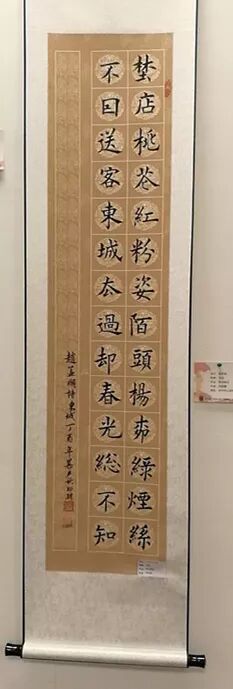 埜店桃花紅粉姿陌頭楊柳綠煙絲
不囙送客東城厺過却春光総不知
趙孟頫詩東城丁酉年